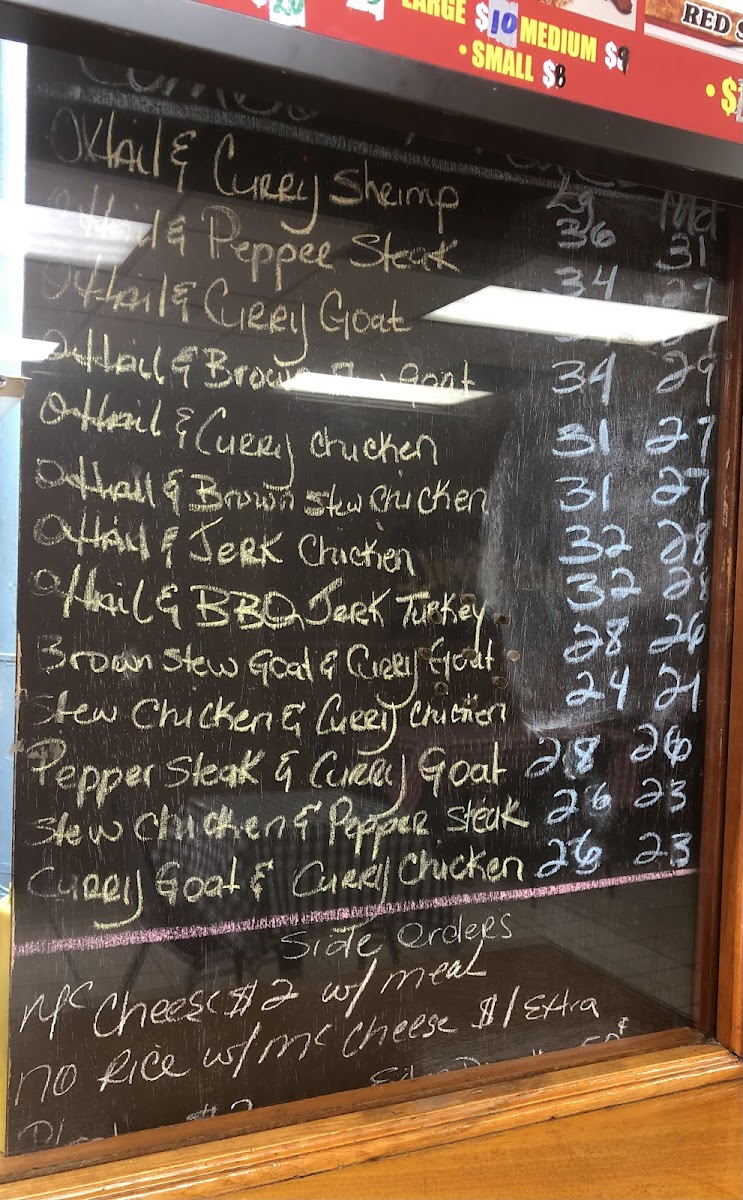 20
LARGE $10 MEDIUM $9
• SMALL $8
RED S
• $
Combo
Lg Md
Oxtail & Curry Shrimp 36 31
Oxtail & Pepper Steak 34
Oxtail & Curry Goat
Oxtail & Brown goat 34 29
Oxtail & Curry chicken 31 27
Oxtail & Brown Stew Chicken 31 27
Oxtail & Jerk Chicken 32 28
Oxtail & BBQ Jerk Turkey 32 28
Brown Stew Goat & Curry Goat 28 26
Stew Chicken & Curry Chicken 24 21
Pepper Steak & Curry Goat 28 26
Stew Chicken & Pepper Steak 26 23
Curry Goat & Curry Chicken 26 23
Side Orders
Mc Cheese $2 w/ meal
NO Rice w/ Mc Cheese $1 Extra